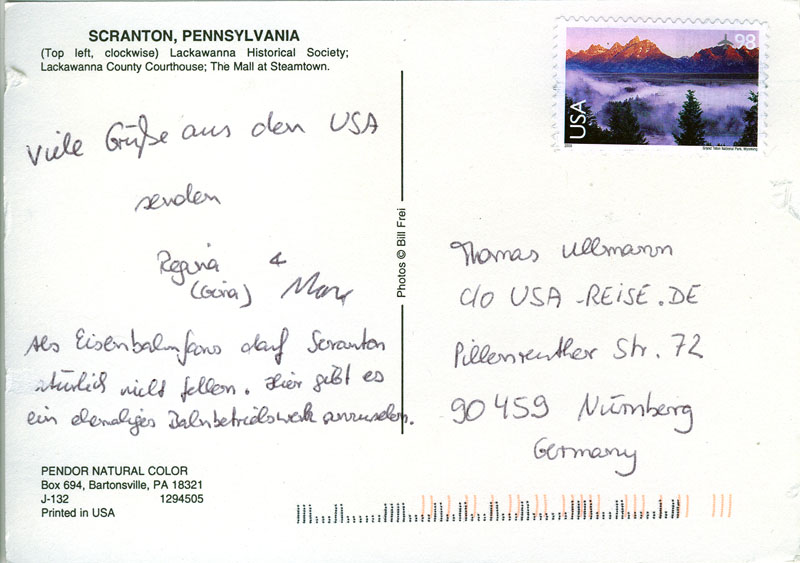 SCRANTON, PENNSYLVANIA
(Top left, clockwise) Lackawanna Historical Society;
Lackawanna County Courthouse; The Mall at Steamtown.
Viele Grüße aus den USA
senden
Regina &
(Gina) Marx
Als Eisenbahnfans darf Scranton
natürlich nicht fehlen. Hier gibt es
ein ehemaliges Bahnbetriebswerk anzusehen.
PENDOR NATURAL COLOR
Box 694, Bartonsville, PA 18321
J-132 1294505
Printed in USA
Photos © Bill Frei
USA
98
2009
Grand Teton National Park, Wyoming
Thomas Ullmann
c/o USA-REISE.DE
Pillenreuther Str. 72
90459 Nürnberg
Germany